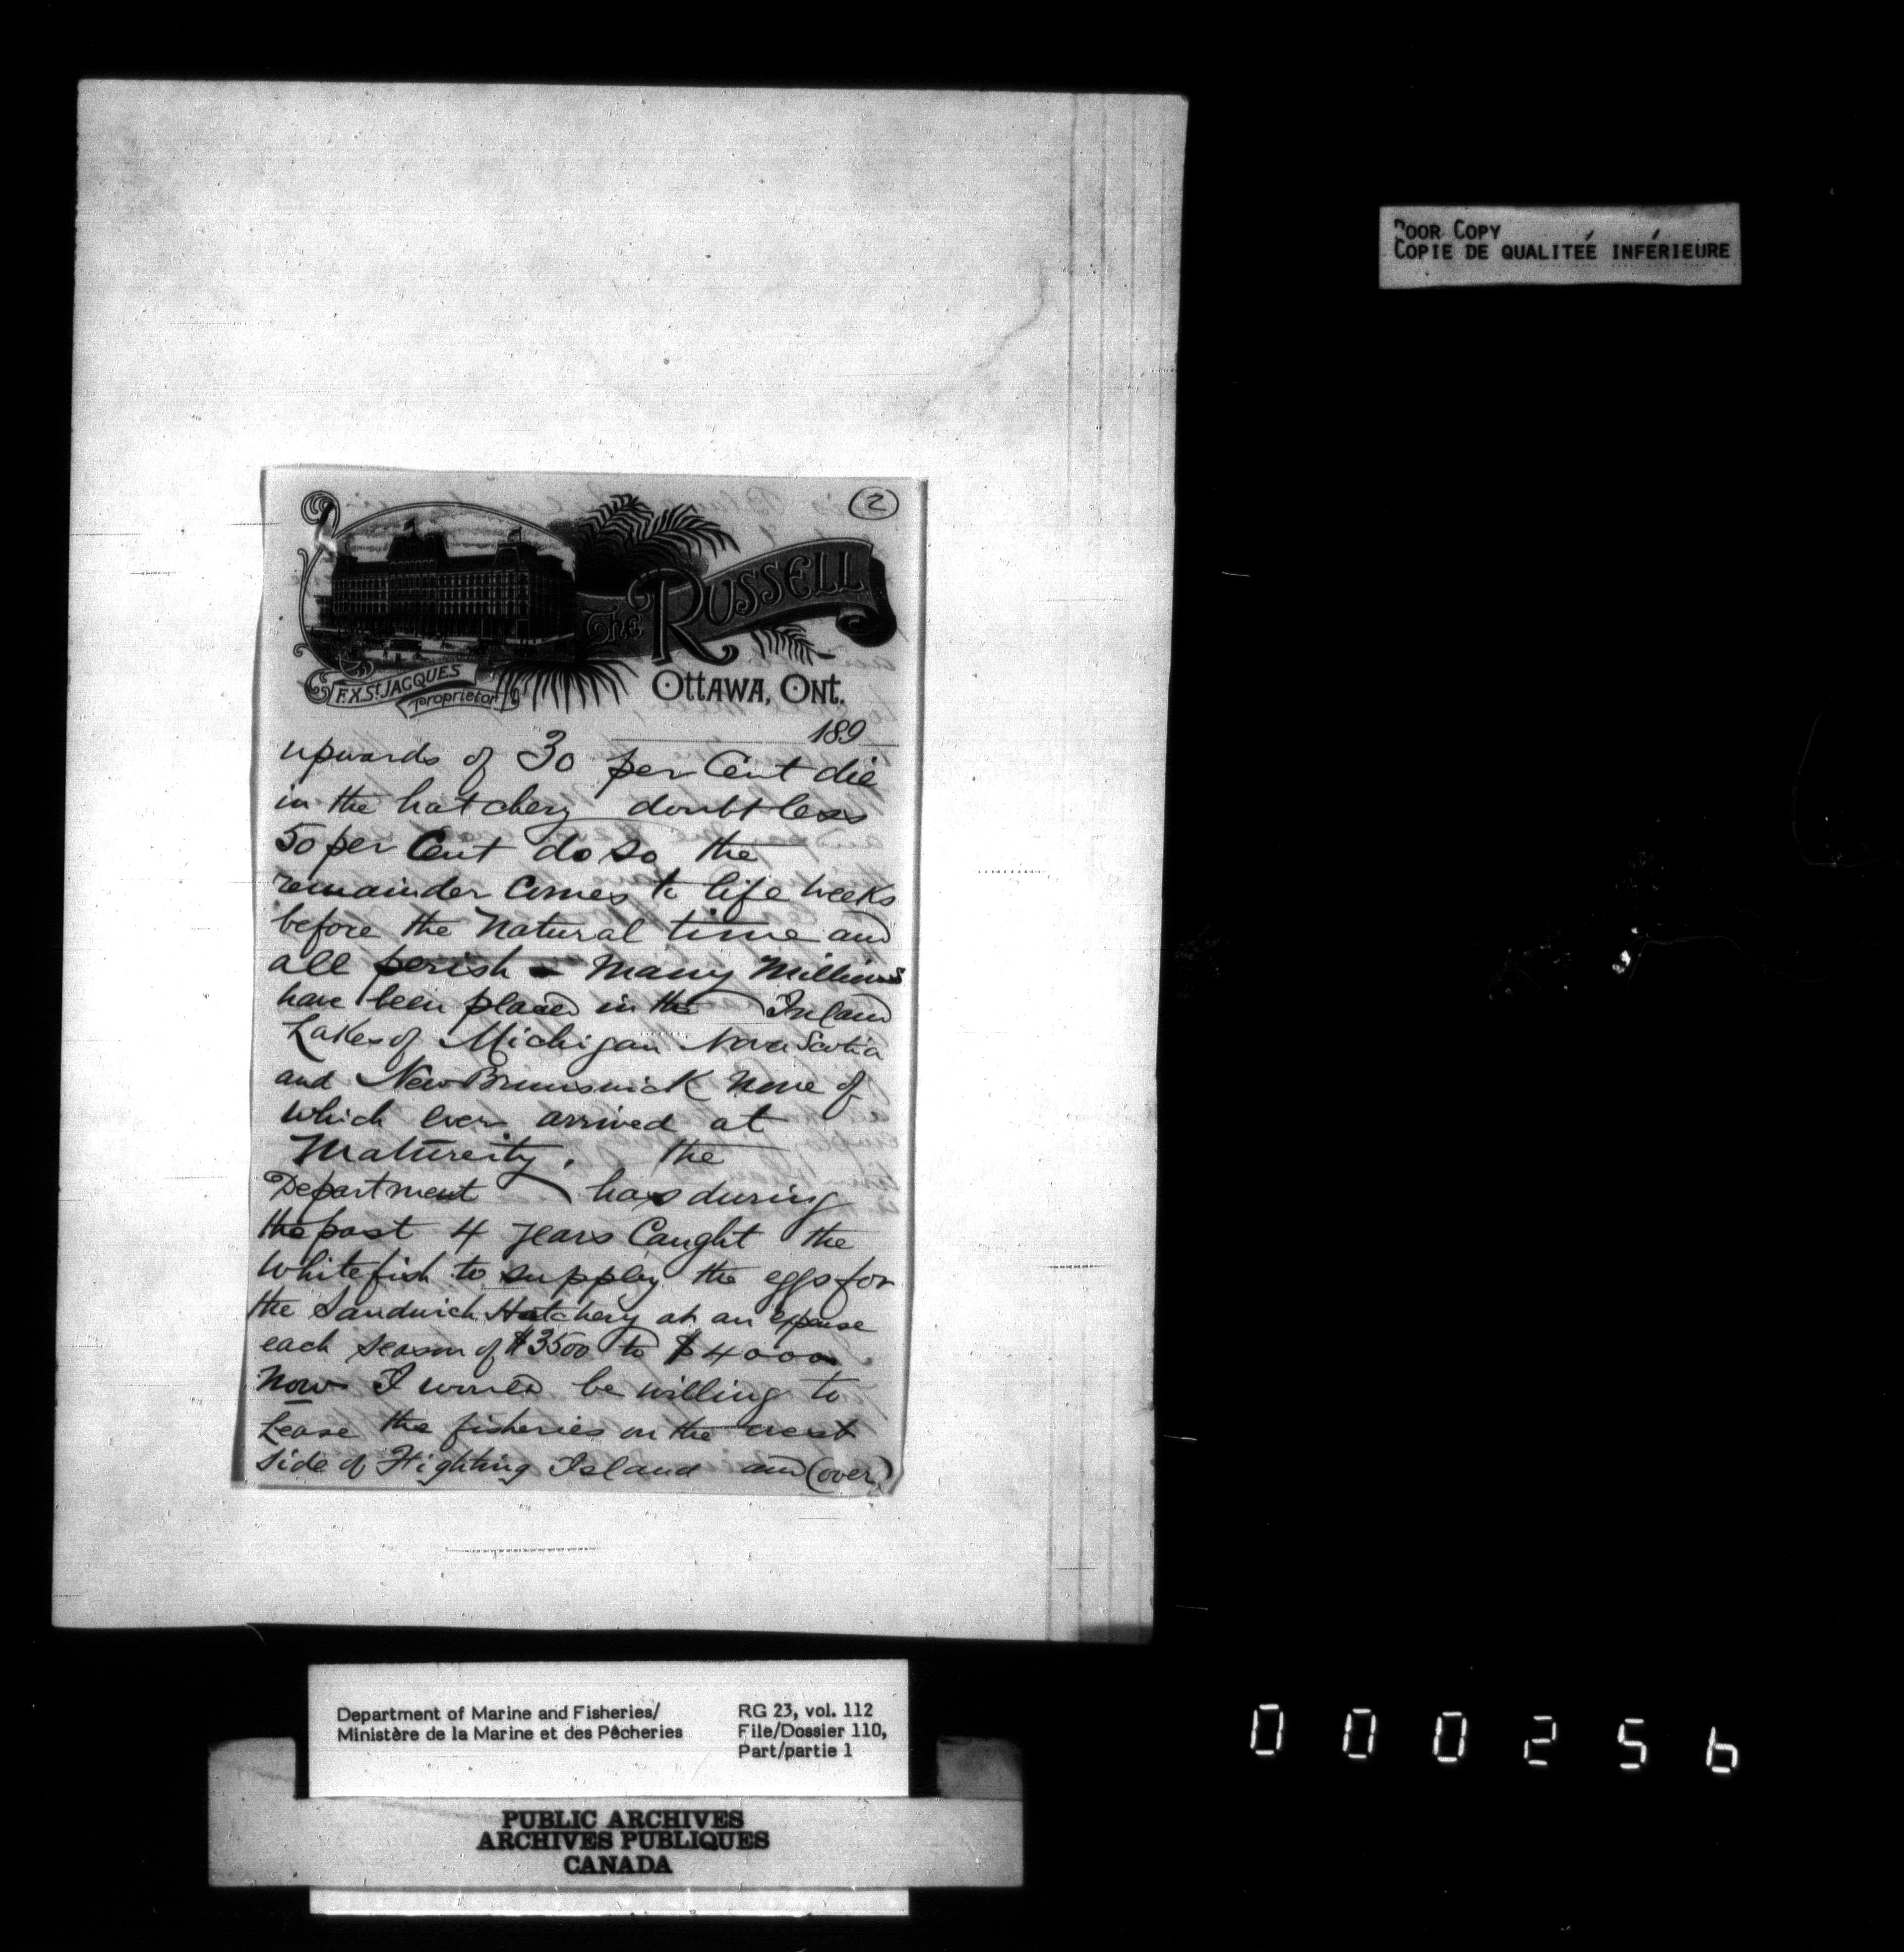 POOR COPY
COPIE DE QUALITEÉ INFÉRIEURE
2
The RUSSELL
F.X. St. JACQUES
Proprietor
OTTAWA, ONT.
189
upwards of 30 per Cent die
in the hatchery doubtless
50 per Cent do so the
remainder Comes to life weeks
before the Natural time and
all perish - Many Millions
have been placed in the Inland
Lakes of Michigan Nova Scotia
and New Brunswick None of
which ever arrived at
Matureity. the
Department has during
the past 4 years Caught the
Whitefish to supply the eggs for
the Sandwich Hatchery at an expense
each season of $3500 to $4000
Now I would be willing to
Lease the fisheries on the west
side of Fighting Island and (over)
Department of Marine and Fisheries/
Ministère de la Marine et des Pêcheries
RG 23, vol. 112
File/Dossier 110,
Part/partie 1
PUBLIC ARCHIVES
ARCHIVES PUBLIQUES
CANADA
000256